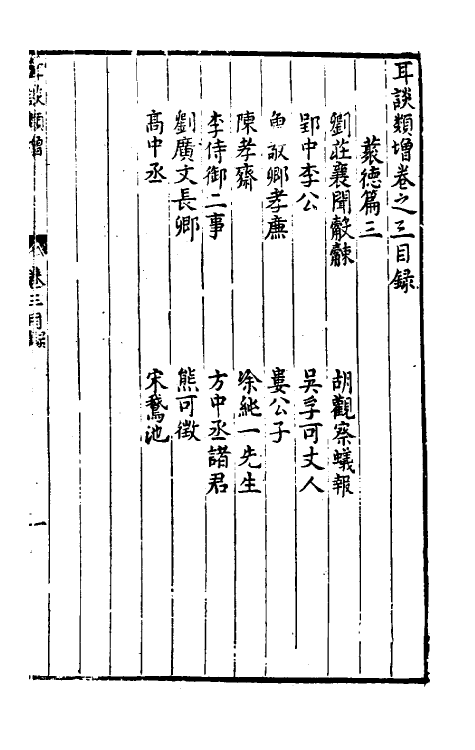 耳談類增卷之三目錄
懿德篇三
劉莊襄聞觳觫 胡觀察蟻報
郢中李公 吳孚可丈人
敬卿孝廉 婁公子
陳孝齋 徐純一先生
李侍御二事 方中丞諸君
劉廣文長卿 熊可徵
高中丞 宋鵞池
耳談類增 卷三目錄 一